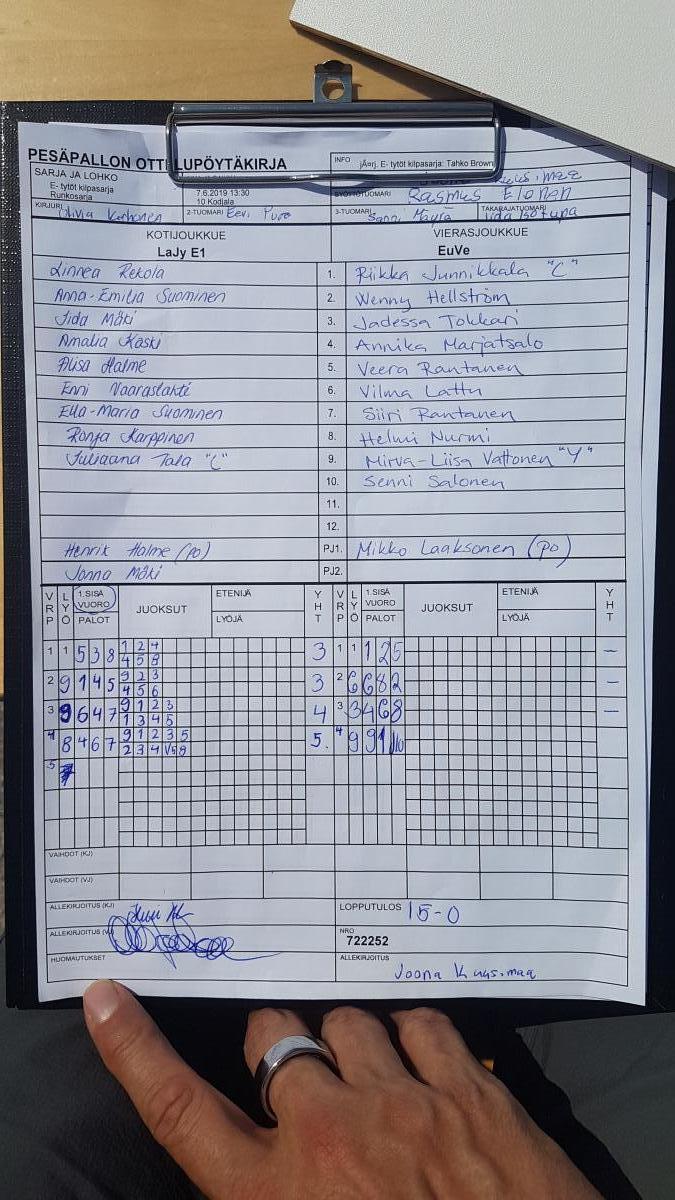 PESÄPALLON OTTELUPÖYTÄKIRJA
INFO jÃ¤rj. E- tytöt kilpasarja: Tahko Brown
SARJA JA LOHKO
E- tytöt kilpasarja
Runkosarja
7.6.2019 13:30
10 Kodjala
SYÖTTÖTUOMARI Rasmus Elonen
KIRJURI
2-TUOMARI Eevi Puro
3-TUOMARI
TAKARAJATUOMARI
KOTIJOUKKUE VIERASJOUKKUE
LaJy E1 EuVe
Linnea Rekola 1. Riikka Junnikkala "C"
Anna-Emilia Suominen 2. Wenny Hellström
Iida Mäki 3. Jadessa Tokkari
Amalia Kaski 4. Annika Marjatsalo
Alisa Halme 5. Veera Rantanen
Enni Vaarastahti 6. Vilma Lattu
Ella-Maria Suominen 7. Siiri Rantanen
Ronja Karppinen 8. Helmi Nurmi
Juliaana Tala "C" 9. Mirva-Liisa Valtonen "Y"
10. Senni Salonen
11.
12.
Henrik Halme (po) PJ1. Mikko Laaksonen (po)
Janna Mäki PJ2.
VRP LYÖ 1.SISÄ VUORO PALOT JUOKSUT ETENIJÄ LYÖJÄ YHT VRP LYÖ 1.SISÄ VUORO PALOT JUOKSUT ETENIJÄ LYÖJÄ YHT
1 1 5 3 8 1 2 4 3 1 1 1 2 5 –
4 5 8
2 9 1 4 5 9 2 3 3 2 6 6 8 2 –
4 5 6
3 9 6 4 7 9 1 2 3 4 3 3 4 6 8 –
1 3 4 5
4 8 4 6 7 9 1 2 3 5 5. 4 9 9 1 10
2 3 4 V5 8
5
VAIHDOT (KJ)
VAIHDOT (VJ)
ALLEKIRJOITUS (KJ) LOPPUTULOS 15-0
ALLEKIRJOITUS NRO
722252
HUOMAUTUKSET ALLEKIRJOITUS
Joona Kuusimaa